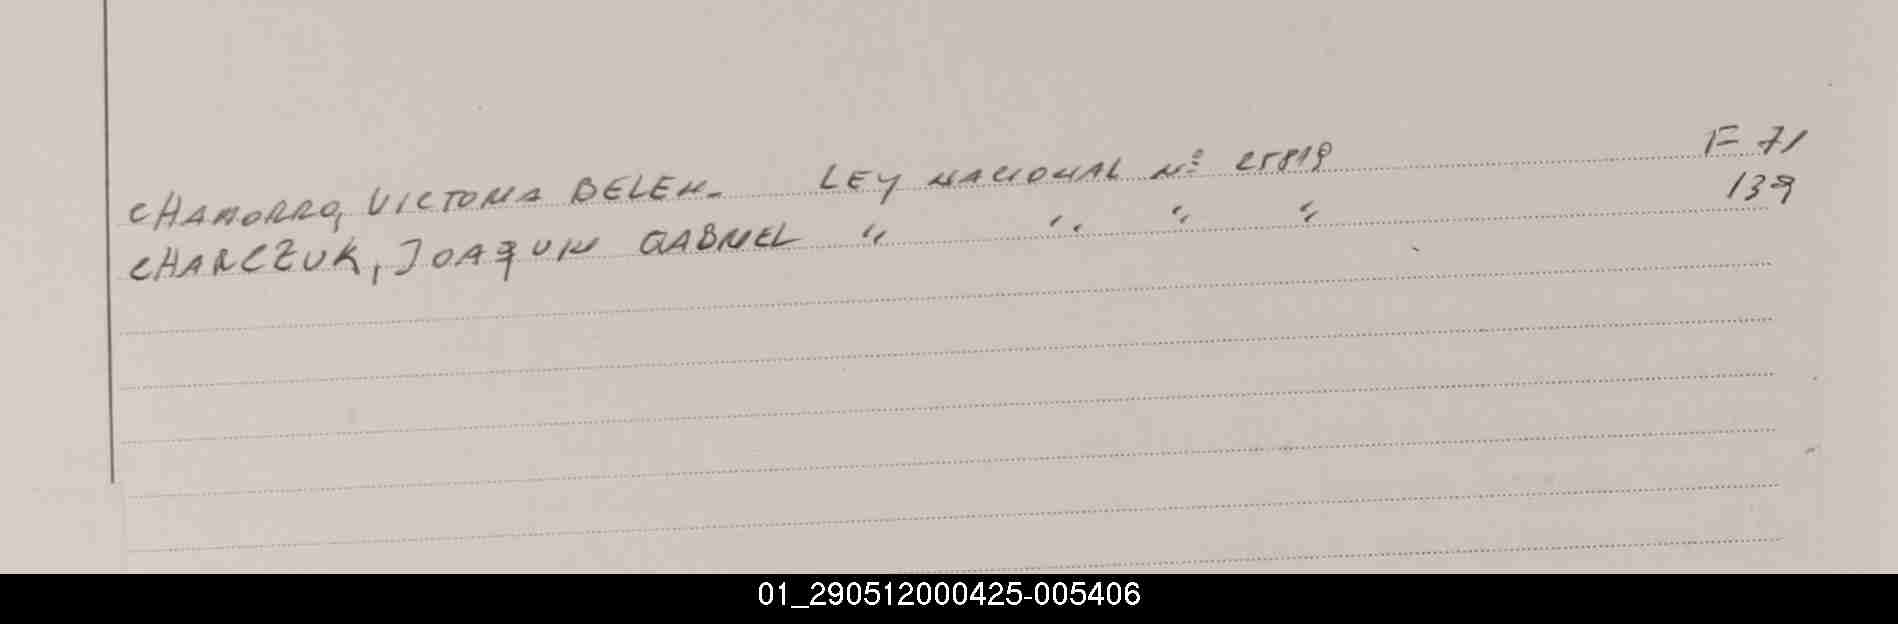 CHAMORRO, VICTORIA BELEN. LEY NACIONAL Nº 25819 F 71
CHARCZUK, JOAQUIN GABRIEL " " " " 139
01_290512000425-005406